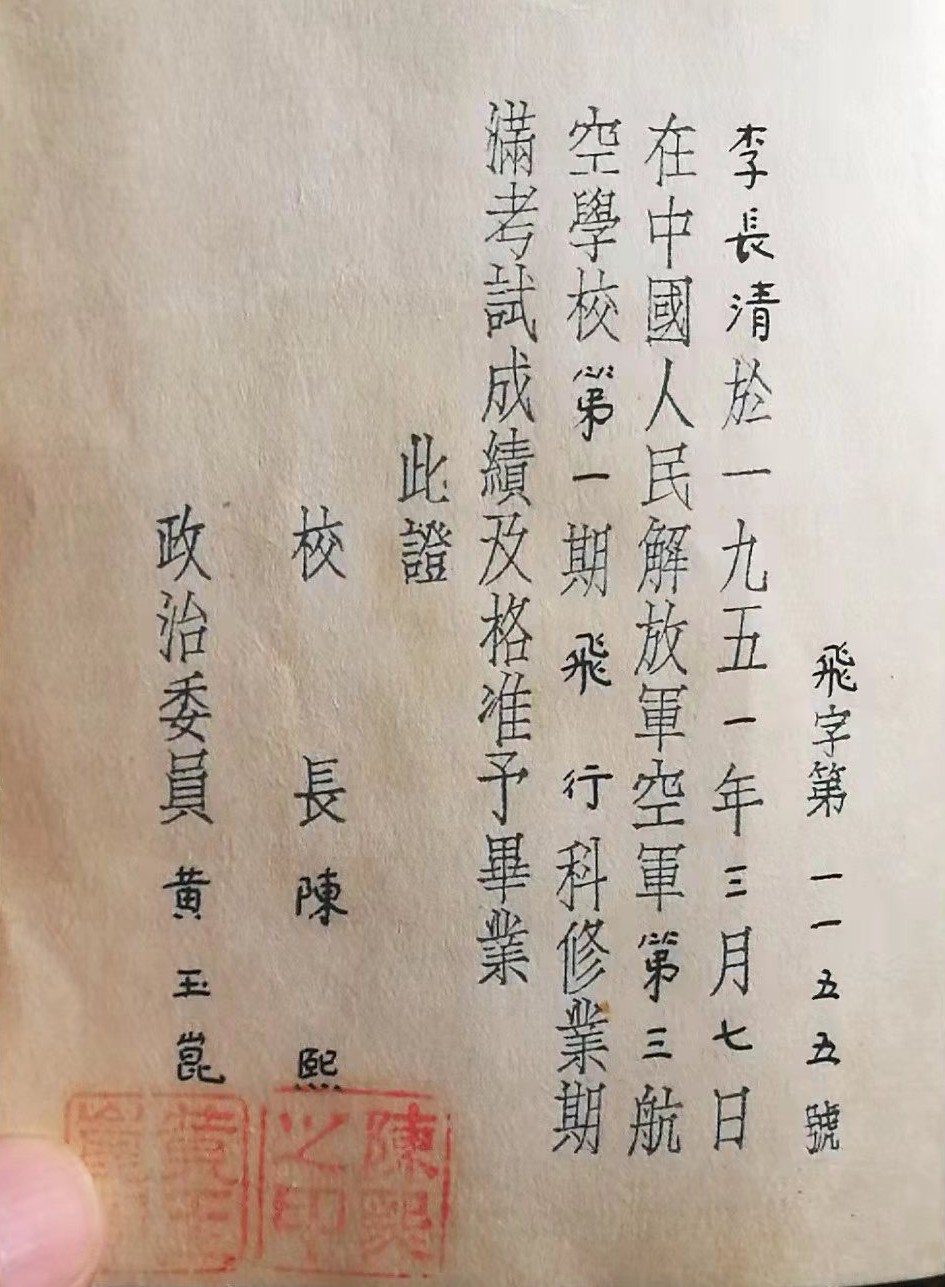 飛字第一一五五號
李長清於一九五一年三月七日
在中國人民解放軍空軍第三航
空學校第一期飛行科修業期
滿考試成績及格准予畢業
此證
校長陳熙
政治委員黃玉崑
陳熙之印
黃玉崑